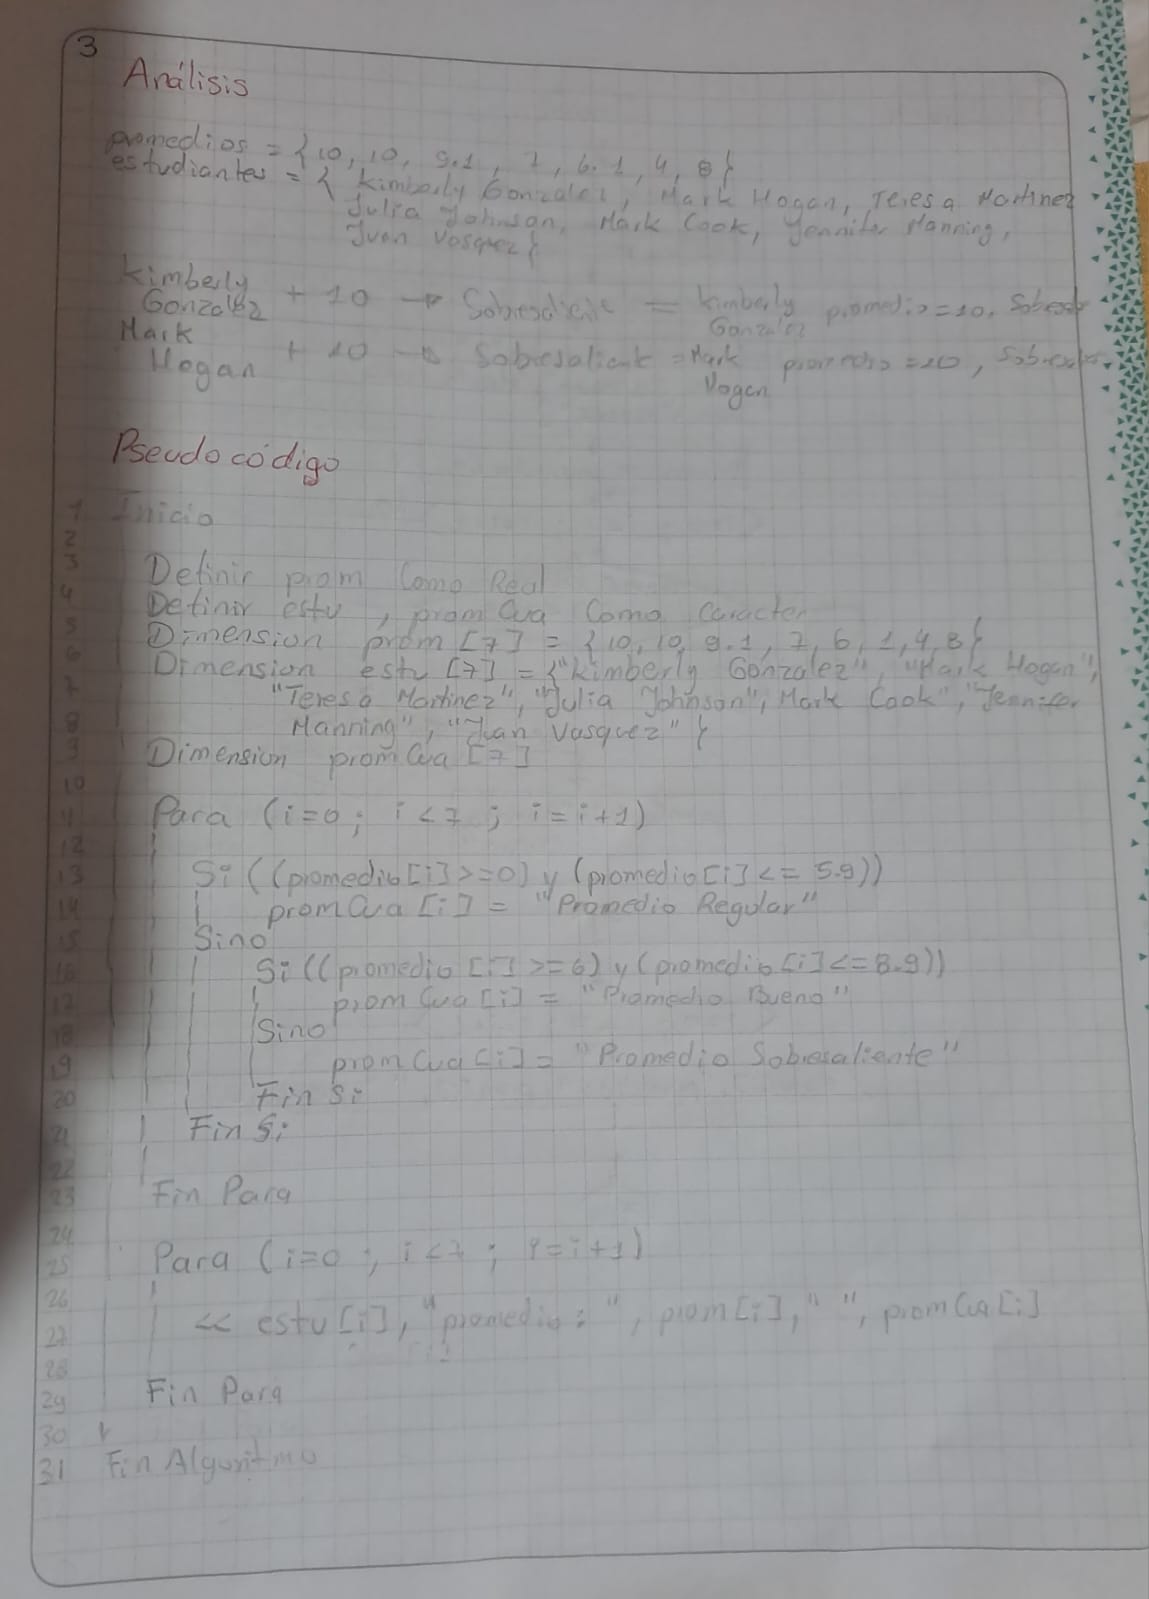 3
Análisis
promedios = {10, 10, 9.1, 7, 6.1, 4, 8}
estudiantes = { Kimberly Gonzalez, Mark Hogan, Teresa Martinez
Julia Johnson, Mark Cook, Jennifer Manning,
Juan Vasquez}
Kimberly Gonzalez + 10 → Sobresaliente = Kimberly Gonzalez promedio=10,
Mark Hogan + 10 → Sobresalient = Mark Hogan promedio =10,
Pseudocódigo
1 Inicio
2
3 Definir prom Como Real
4 Definir estu, promCua Como Caracter
5 Dimension prom [7] = {10, 10, 9.1, 7, 6, 1, 4, 8}
6 Dimension estu [7] = {"Kimberly Gonzalez", "Mark Hogan",
7 "Teresa Martinez", "Julia Johnson", Mark Cook", "Jennifer
8 Manning", "Juan Vasquez" }
9 Dimension promCua [7]
10
11 Para (i=0; i<7; i=i+1)
12
13 Si ((promedio[i]>=0) y (promedio[i]<= 5.9))
14 promCua [i] = "Promedio Regular"
15 Sino
16 Si ((promedio [i] >=6) y (promedio[i]<=8.9))
17 promCua [i] = "Promedio Bueno"
18 Sino
19 promCua[i] = "Promedio Sobresaliente"
20 Fin Si
21 Fin Si
22
23 Fin Para
24
25 Para (i=0; i<7; i=i+1)
26
27 << estu[i], "promedio: ", prom[i], " ", promCua[i]
28
29 Fin Para
30
31 Fin Algoritmo